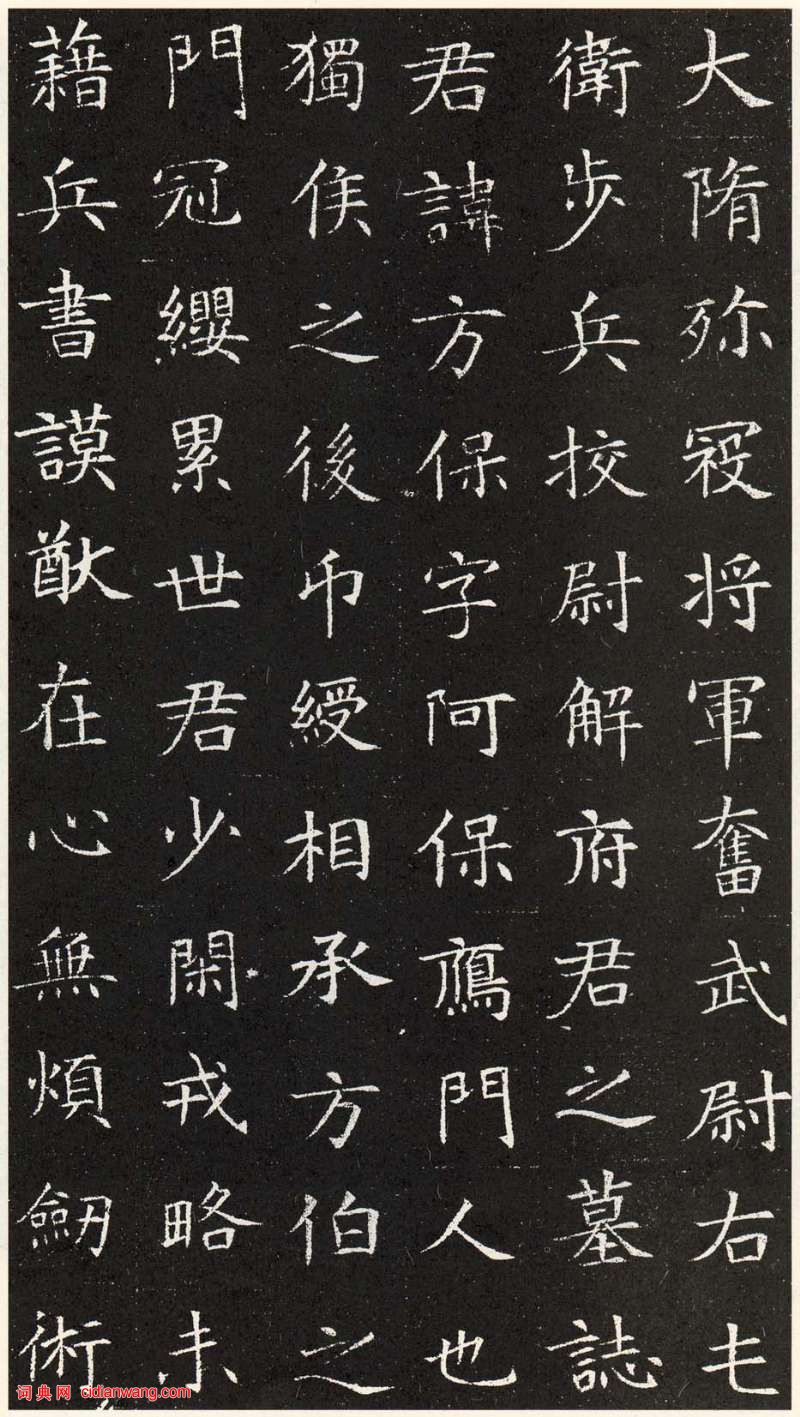 大隋殄寇将軍奮武尉右乇
衛步兵挍尉解府君之墓誌
君諱方保字阿保鴈門人也
獨侯之後巾綬相承方伯之
門冠纓累世君少閑戎略未
藉兵書謨猷在心無煩劒術
词典网 cidianwang.com